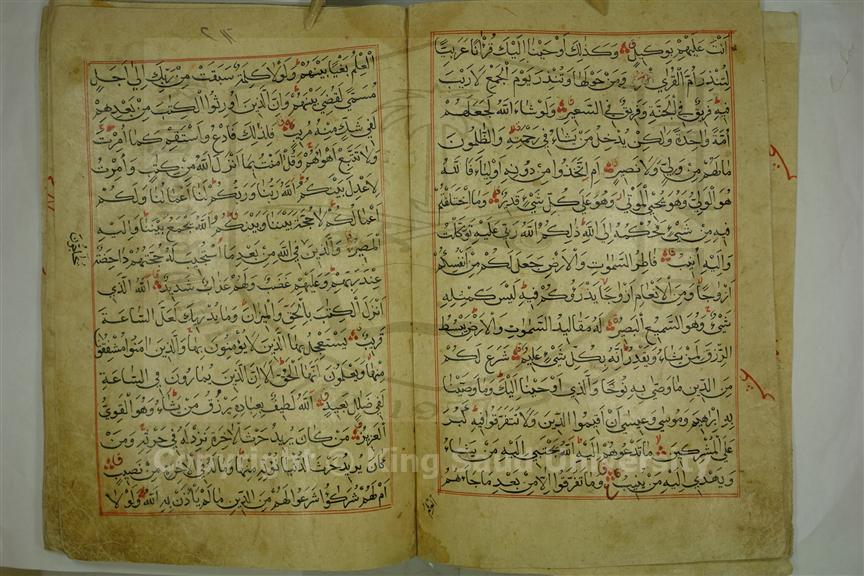 انت عليهم بوكيل وكذلك اوحينا اليك قرانا عربيا
لتنذر ام القرى ومن حولها وتنذر يوم الجمع لا ريب
فيه فريق في الجنة وفريق في السعير ولو شاء الله لجعلهم
امة واحدة ولكن يدخل من يشاء في رحمته والظلمون
مالهم من ولي ولا نصير ام اتخذوا من دونه اولياء فالله
هو الولي وهو يحيي الموتى وهو على كل شيء قدير وما اختلفتم
فيه من شيء فحكمه الى الله ذلكم الله ربي عليه توكلت
واليه انيب فاطر السموت والارض جعل لكم من انفسكم
ازوجا ومن الانعام ازوجا يذرؤكم فيه ليس كمثله
شيء وهو السميع البصير له مقاليد السموت والارض يبسط
الرزق لمن يشاء ويقدر انه بكل شيء عليم شرع لكم
من الدين ما وصى به نوحا والذي اوحينا اليك وما وصينا
به ابرهيم وموسى وعيسى ان اقيموا الدين ولا تتفرقوا فيه كبر
على المشركين ما تدعوهم اليه الله يجتبي اليه من يشاء
ويهدي اليه من ينيب وما تفرقوا الا من بعد ما جاءهم
العلم
العلم بغيا بينهم ولولا كلمة سبقت من ربك الى اجل
مسمى لقضي بينهم وان الذين اورثوا الكتب من بعدهم
لفي شك منه مريب فلذلك فادع واستقم كما امرت
ولا تتبع اهواءهم وقل امنت بما انزل الله من كتب وامرت
لاعدل بينكم الله ربنا وربكم لنا اعمالنا ولكم
اعمالكم لا حجة بيننا وبينكم الله يجمع بيننا واليه
المصير والذين في الله من بعد ما استجيب له حجتهم داحضة
يحاجون
عند ربهم وعليهم غضب ولهم عذاب شديد الله الذي
انزل الكتب بالحق والميزان وما يدريك لعل الساعة
قريب يستعجل بها الذين لا يؤمنون بها والذين امنوا مشفقون
منها ويعلمون انها الحق الا ان الذين يمارون في الساعة
لفي ضلل بعيد الله لطيف بعباده يرزق من يشاء وهو القوي
العزيز من كان يريد حرث الاخرة نزد له في حرثه ومن
كان يريد حرث الدنيا نؤته منها وما له في الاخرة من نصيب
ام لهم شركؤا شرعوا لهم من الدين ما لم ياذن به الله ولولا
Copyright © King Saud University